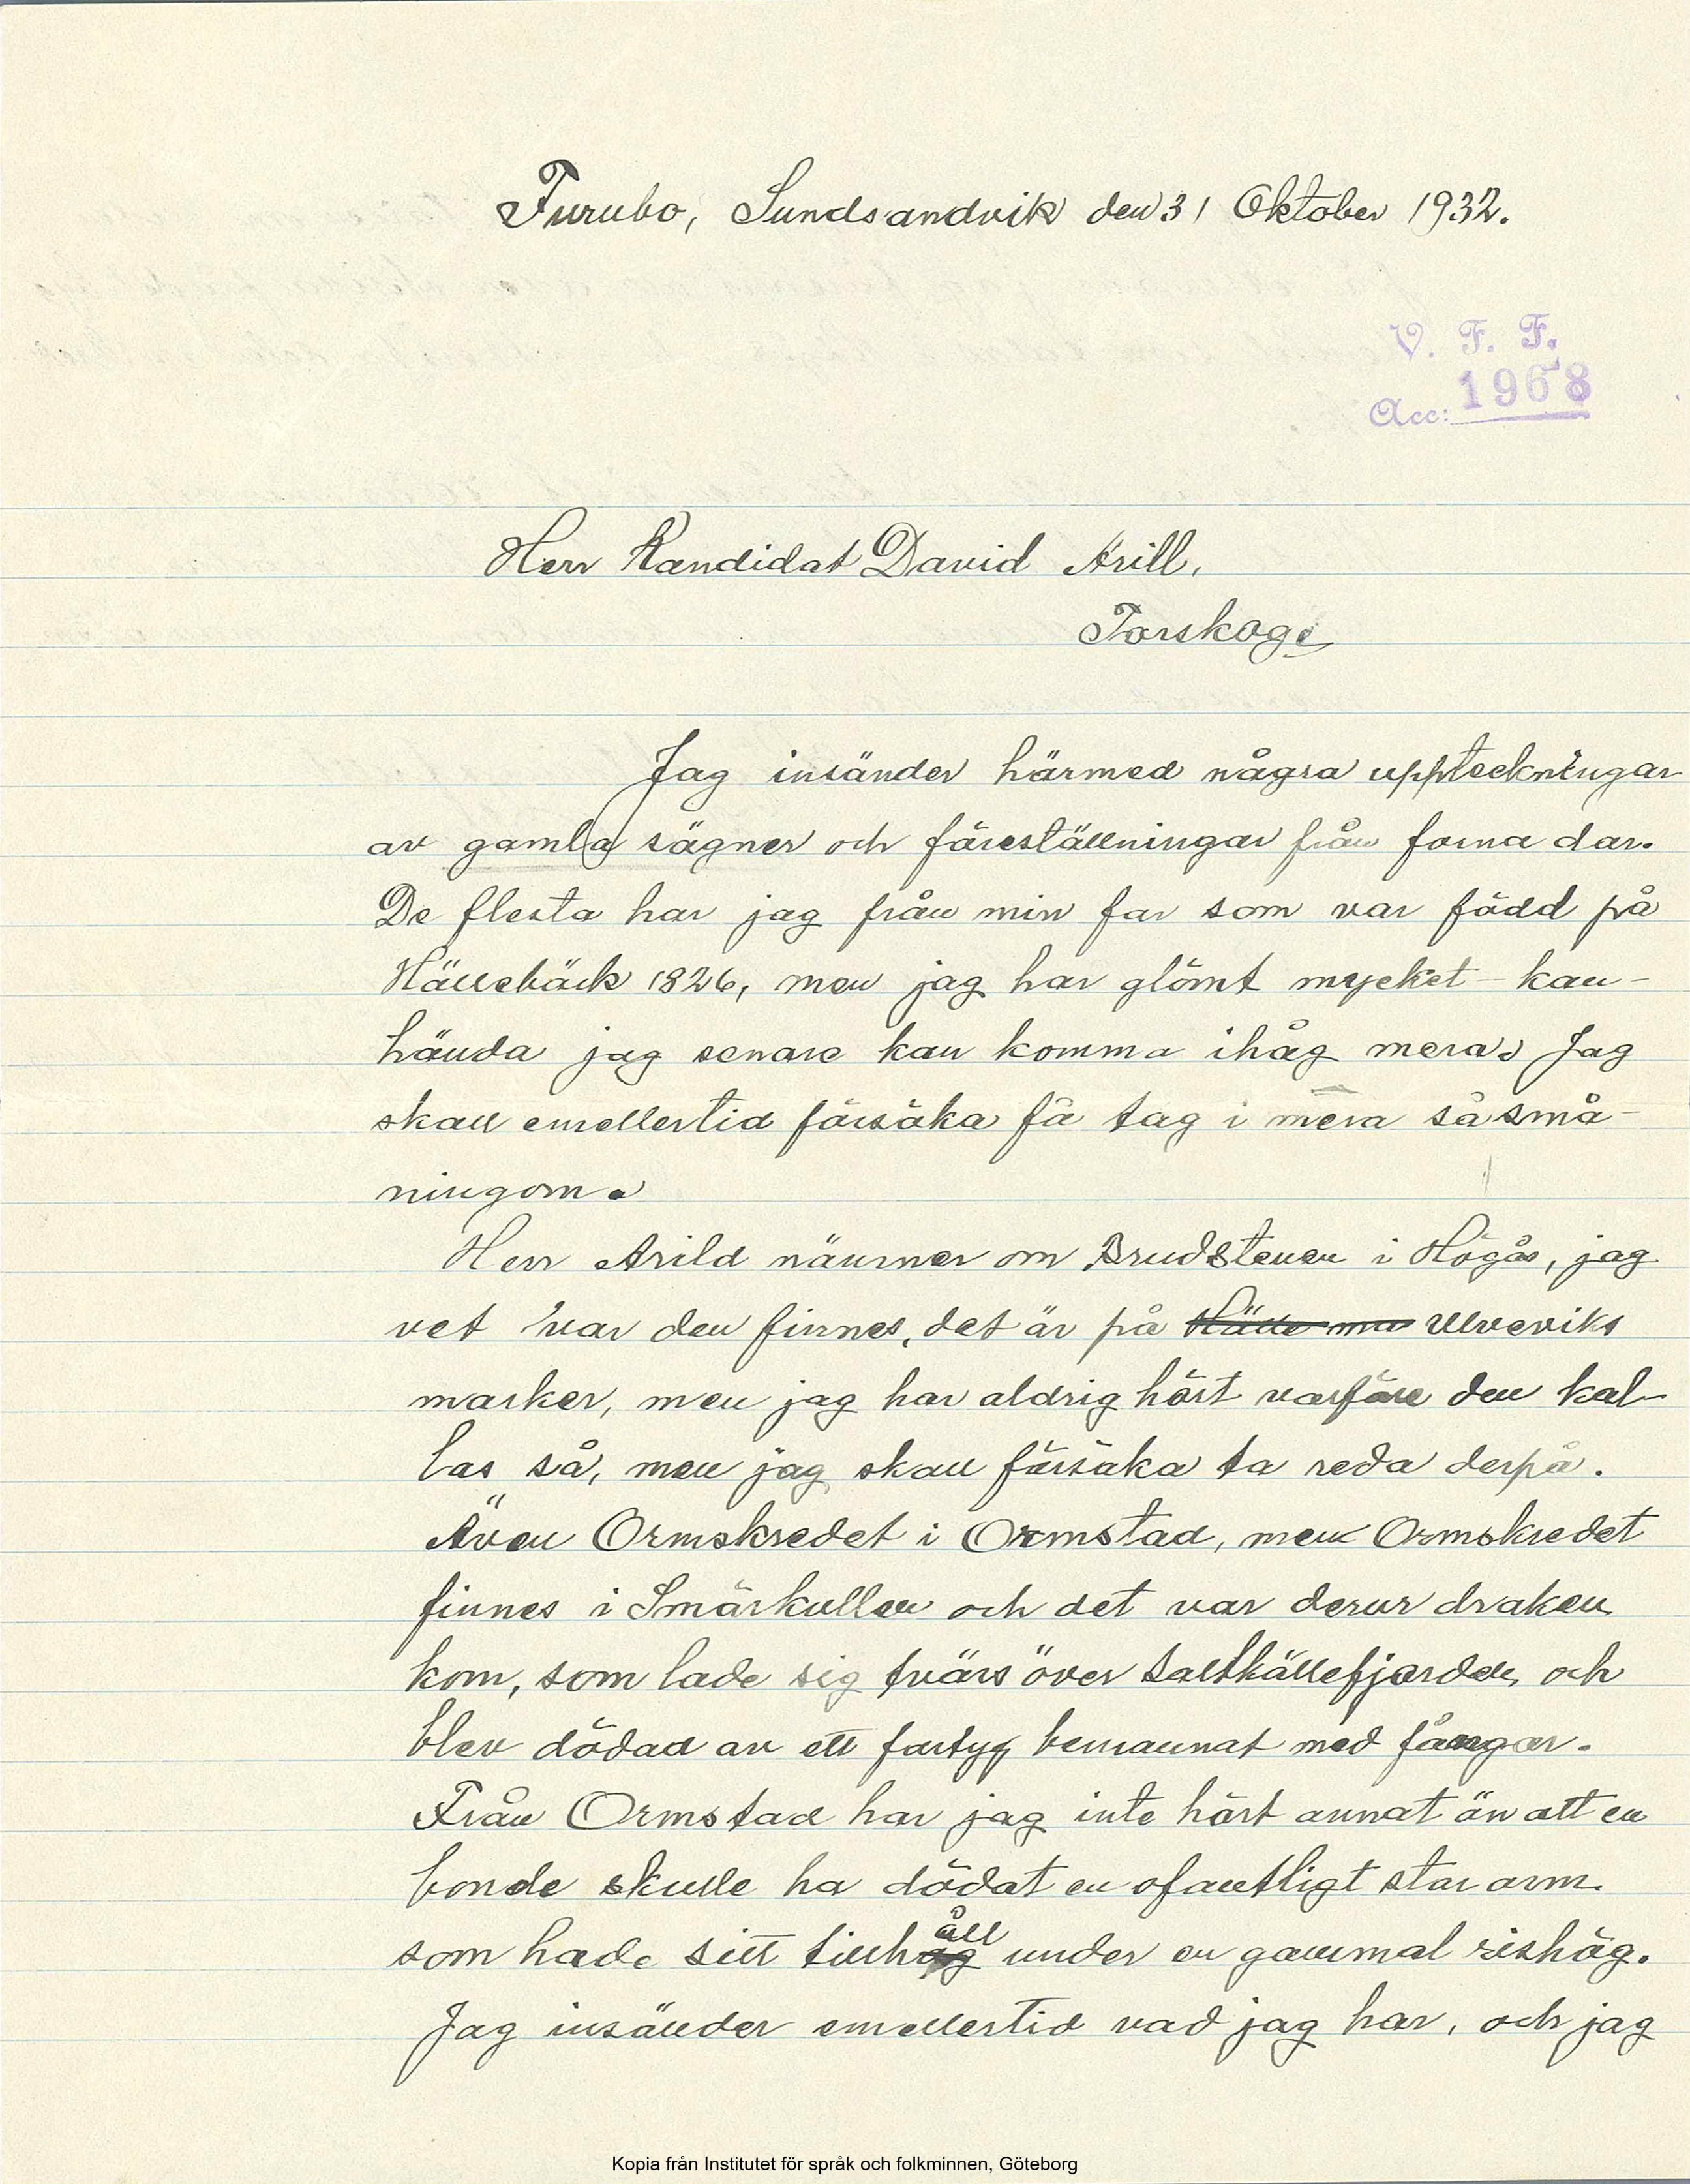 Furubo, Sundsandvik den 31 Oktober 1932.
V. F. F.
Acc: 1968
Herr Kandidat David Arill.
Torskoge
Jag insänder härmed några uppteckningar
av gamla sägner och föreställningar från forna dar.
De flesta har jag från min far som var född på
Hällebäck 1826, men jag har glömt mycket - kan-
hända jag senare kan komma ihåg mera. Jag
skall emellertid försöka få tag i mera så små-
ningom.
Herr Arild nämner om Brudstenen i Högås, jag
vet var den finnes, det är på Hälle ma Ulveviks
marker, men jag har aldrig hört varföre den kal-
las så, men jag skall försöka ta reda derpå.
Även Ormskredet i Ormstad, men Ormskredet
finnes i Smörkullen och det var derur draken
kom, som lade sig tvärs över Saltkällefjorden och
blev dödad av ett fartyg bemannat med fångar.
Från Ormstad har jag inte hört annat än att en
bonde skulle ha dödat en ofantligt stor orm
som hade sitt tillhåll under en gammal rishög.
Jag insänder emellertid vad jag har, och jag
Kopia från Institutet för språk och folkminnen, Göteborg